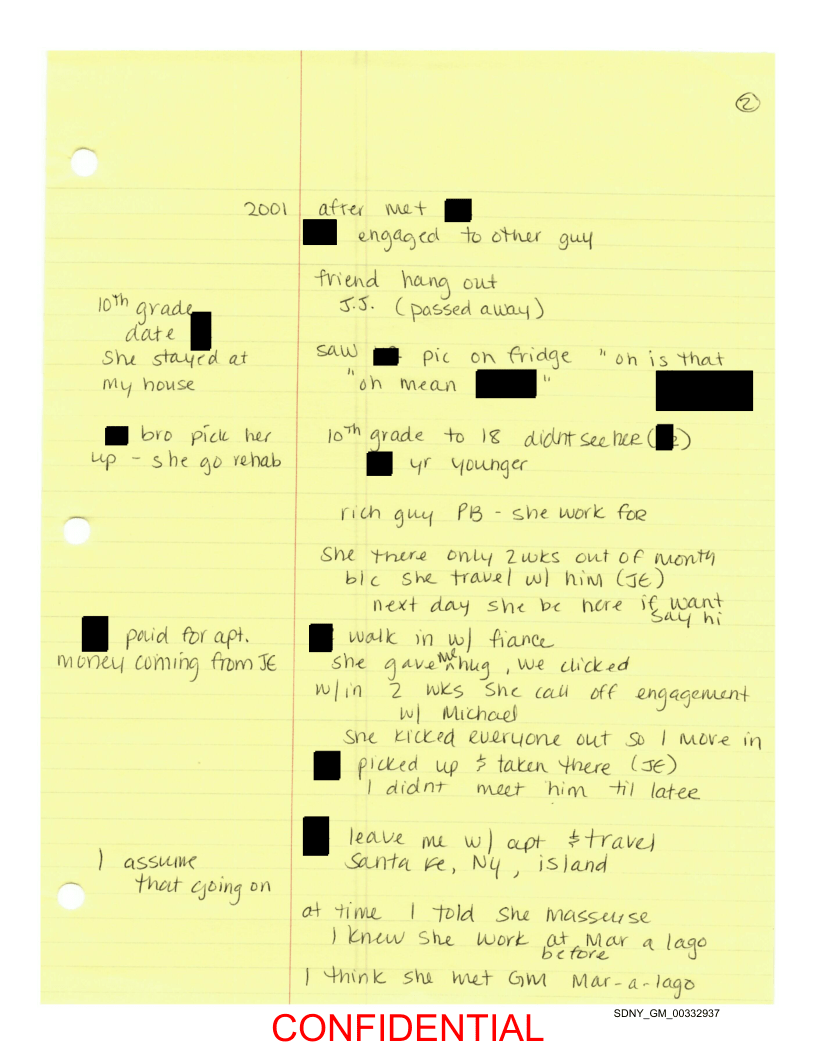 2
2001 after met
engaged to other guy
friend hang out
J.J. (passed away)
10th grade
date
She stayed at
my house
saw pic on fridge "oh is that
"oh mean "
bro pick her
up - she go rehab
10th grade to 18 didnt see her ( )
yr younger
rich guy PB - she work for
she there only 2 wks out of month
b/c she travel w/ him (JE)
next day she be here if want
say hi
paid for apt.
money coming from JE
walk in w/ fiance
she gave me hug, we clicked
w/in 2 wks she call off engagement
w/ Michael
she kicked everyone out so I move in
picked up & taken there (JE)
I didnt meet him til later
leave me w/ apt & travel
Santa Fe, NY, island
I assume
that going on
at time I told she masseuse
I knew she work at Mar a lago
before
I think she met GM Mar-a-lago
SDNY_GM_00332937
CONFIDENTIAL